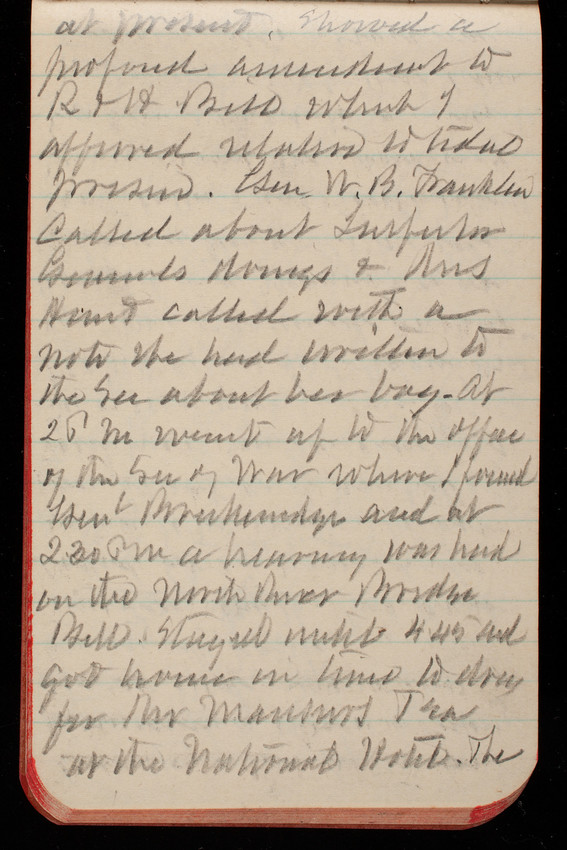 at present. Showed a
proposed amendment to
R & H Bill which I
approved relative to tidal
 Genl. W. B. Franklin
called about Inspector
Generals doings & Mrs
Hunt called with a
note she had written to
the Sec about her boy. At
2 P M went up to the office
of the Sec of War where I found
Genl Breckenridge and at
2 30 P M a hearing was had
on the North River Bridge
Bill. Stayed until 4 45 and
got home in time to
for Mr Tea
at the National Hotel. The